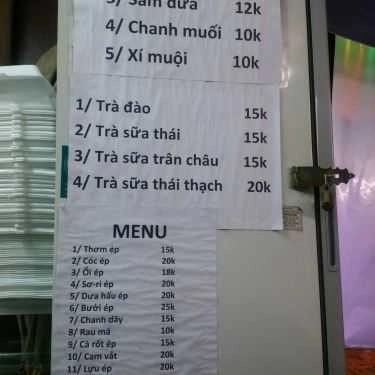 3/ Sâm dứa 12k
4/ Chanh muối 10k
5/ Xí muội 10k
1/ Trà đào 15k
2/ Trà sữa thái 15k
3/ Trà sữa trân châu 15k
4/ Trà sữa thái thạch 20k
MENU
1/ Thơm ép 15k
2/ Cóc ép 20k
3/ Ổi ép 18k
4/ Sơ-ri ép 20k
5/ Dưa hấu ép 20k
6/ Bưởi ép 25k
7/ Chanh dây 15k
8/ Rau má 10k
9/ Cà rốt ép 15k
10/ Cam vắt 20k
11/ Lựu ép 20k